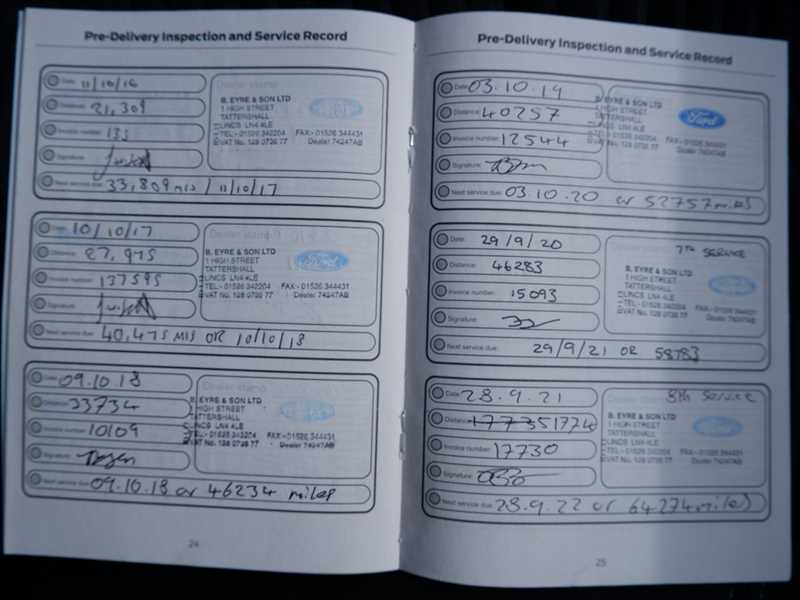 Pre-Delivery Inspection and Service Record
Date: 11/10/16
Distance: 21,309
Invoice number: 133
Signature:
Next service due: 33,809 mls / 11/10/17
Dealer stamp
B. EYRE & SON LTD
1 HIGH STREET
TATTERSHALL
LINCS LN4 4LE
TEL - 01526 342204 FAX - 01526 344431
VAT No. 128 0736 77 Dealer 74247AB
Ford
Date: 10/10/17
Distance: 27,975
Invoice number: 137595
Signature:
Next service due: 40,475 MLS OR 10/10/18
Dealer stamp
B. EYRE & SON LTD
1 HIGH STREET
TATTERSHALL
LINCS LN4 4LE
TEL - 01526 342204 FAX - 01526 344431
VAT No. 128 0736 77 Dealer 74247AB
Ford
Date: 09.10.18
Distance: 33734
Invoice number: 10109
Signature:
Next service due: 09.10.18 or 46234 miles
Dealer stamp
B. EYRE & SON LTD
1 HIGH STREET
TATTERSHALL
LINCS LN4 4LE
TEL - 01526 342204 FAX - 01526 344431
VAT No. 128 0736 77 Dealer 74247AB
Ford
24
Pre-Delivery Inspection and Service Record
Date: 03.10.19
Distance: 40257
Invoice number: 12544
Signature:
Next service due: 03.10.20 or 52757 miles
B. EYRE & SON LTD
1 HIGH STREET
TATTERSHALL
LINCS LN4 4LE
TEL - 01526 342204 FAX - 01526 344431
VAT No. 128 0736 77 Dealer 74247AB
Ford
Date: 29/9/20
Distance: 46283
Invoice number: 15093
Signature:
Next service due: 29/9/21 OR 58783
7TH SERVICE
B. EYRE & SON LTD
1 HIGH STREET
TATTERSHALL
LINCS LN4 4LE
TEL - 01526 342204 FAX - 01526 344431
VAT No. 128 0736 77 Dealer 74247AB
Ford
Date: 28.9.21
Distance: 1773 51774
Invoice number: 17730
Signature:
Next service due: 28.9.22 or 64274 miles
8th Service
B. EYRE & SON LTD
1 HIGH STREET
TATTERSHALL
LINCS LN4 4LE
TEL - 01526 342204 FAX - 01526 344431
VAT No. 128 0736 77 Dealer 74247AB
Ford
25